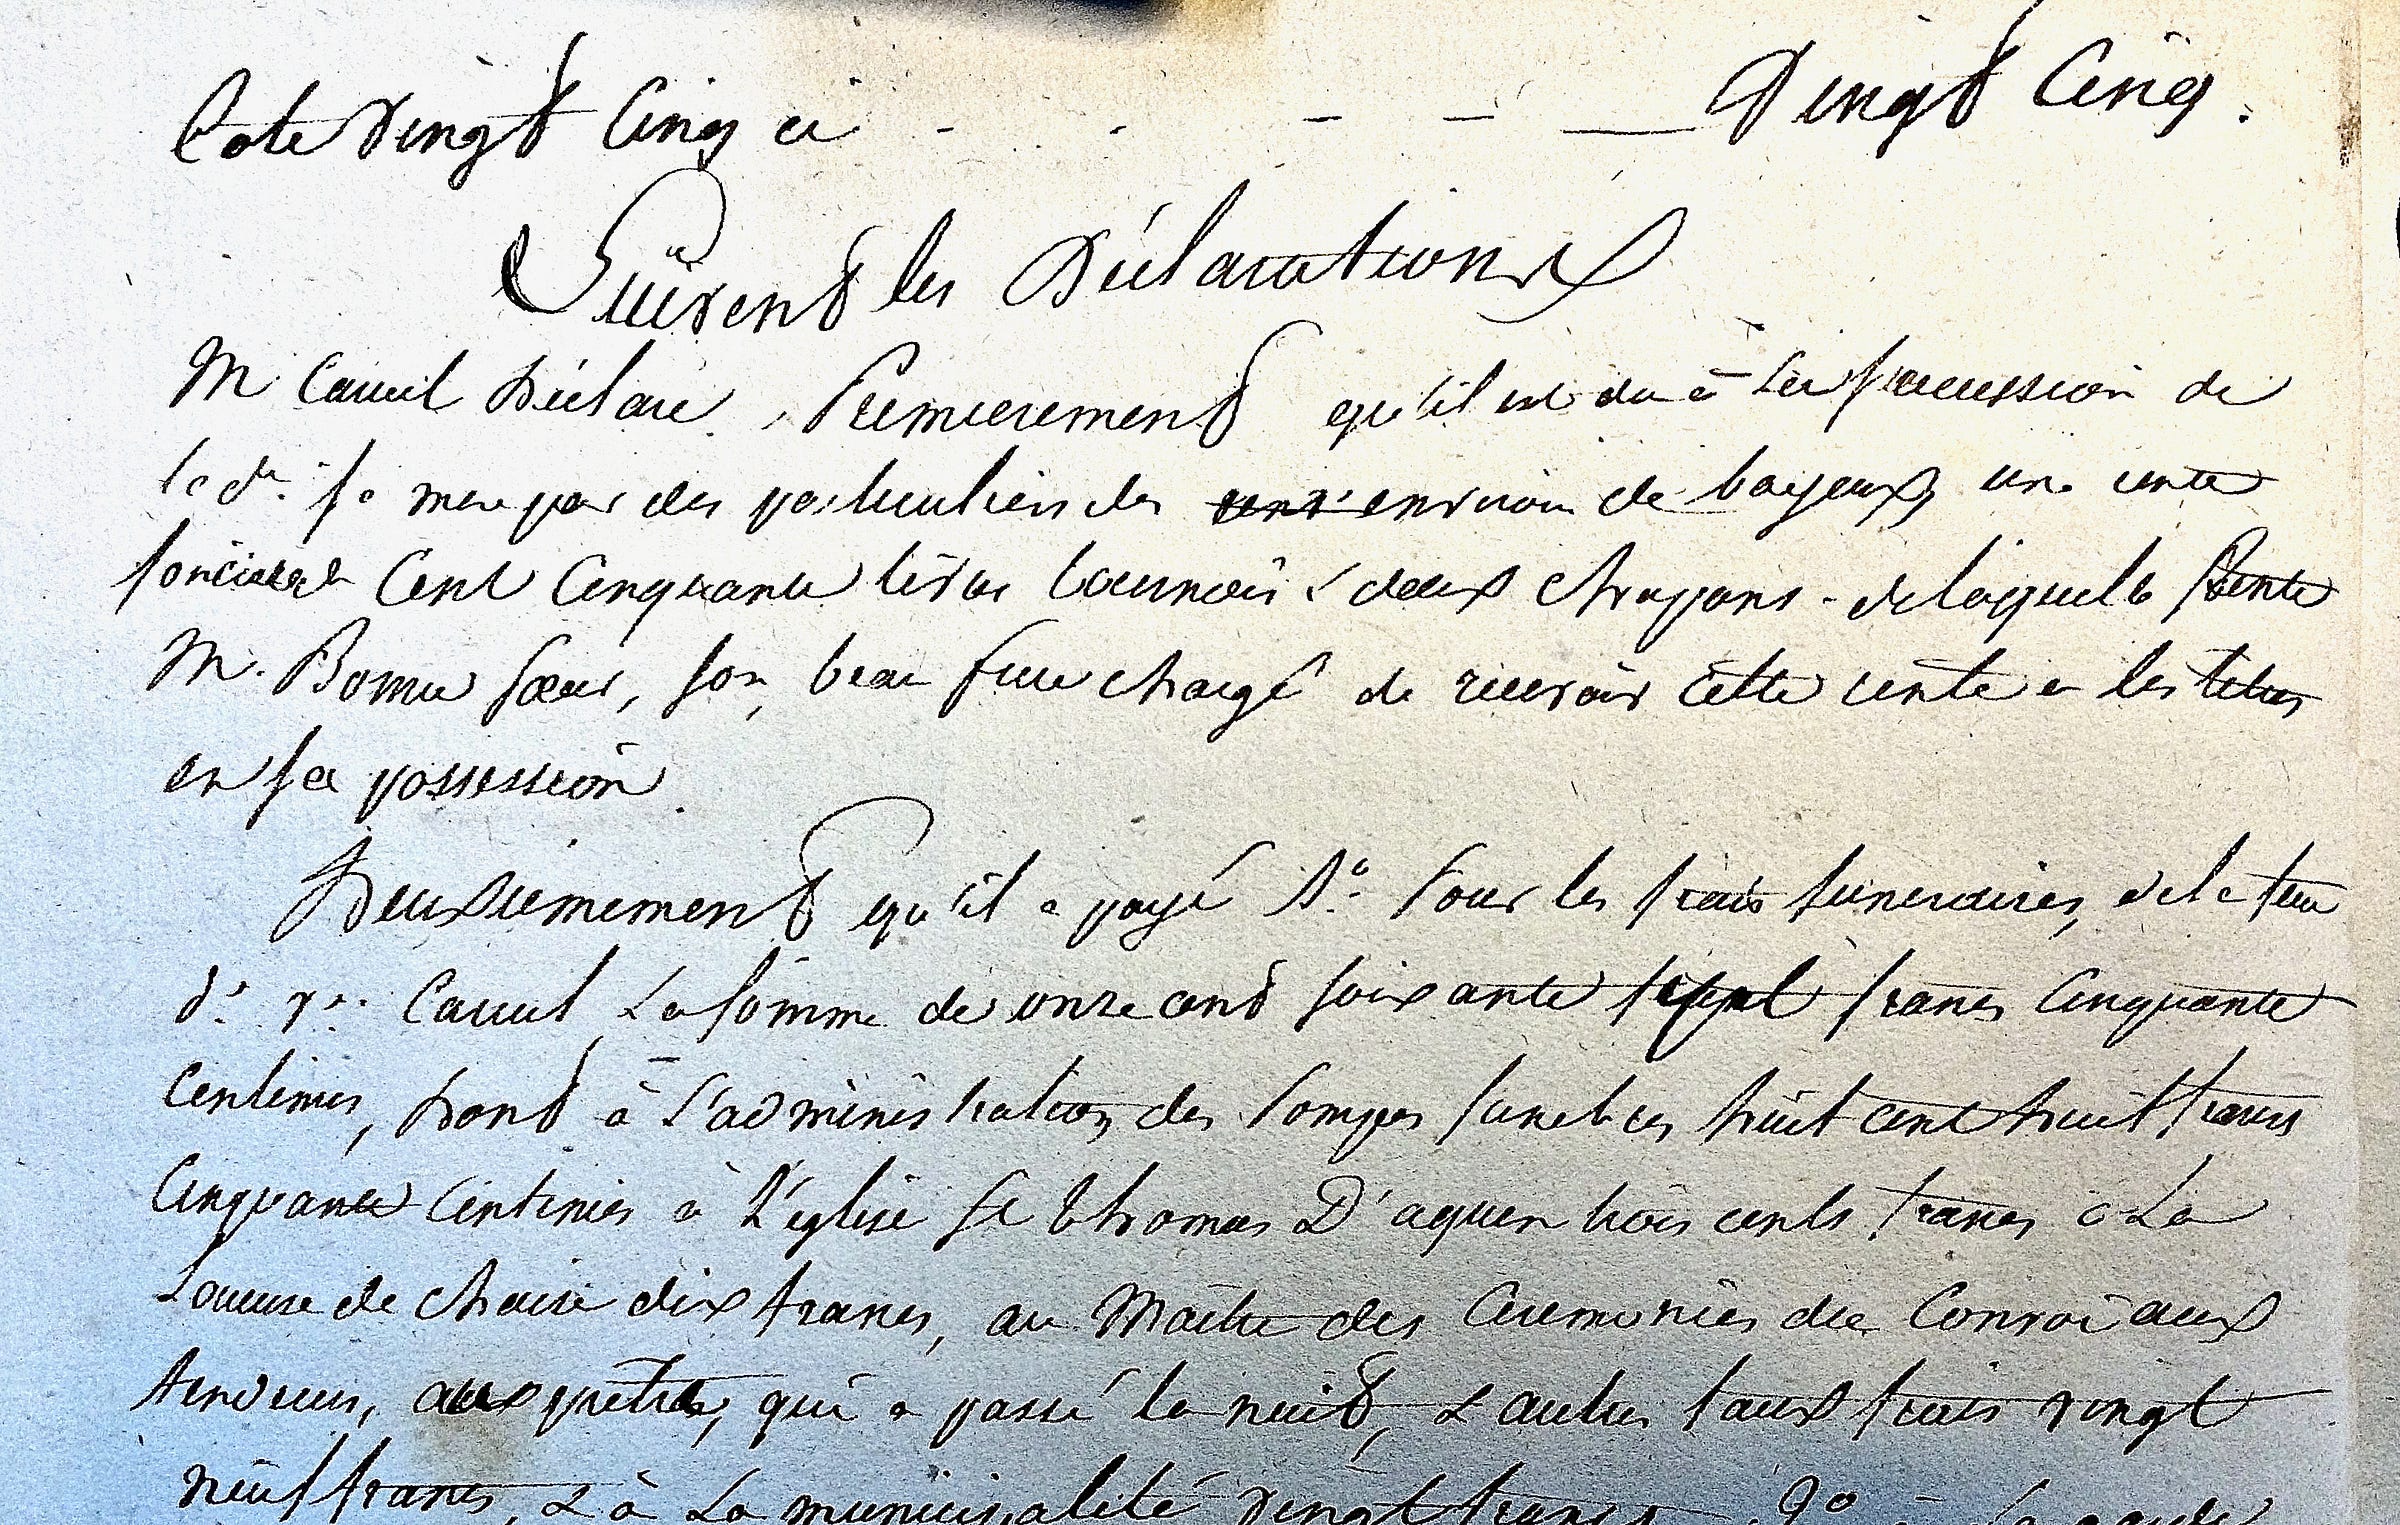 Cote vingt Cinq ci - - - - — Vingt Cinq.
Suivent les Déclarations
M. Cauvel Déclare, Premierement qu'il est du à La succession de
lad. fe. mere par des particuliers des environ de bayeux, une rente
fonciere de Cent Cinquante livres tournois & deux chappons - de laquelle Rente
M. Bomer soeur, son beau frere chargé de recevoir cette rente a les titres
en sa possession.
Deuxiemement qu'il a payé 1o. Pour les frais funeraires, de la feu
de. ve. Cauvel La somme de onze cent soixante sept francs Cinquante
Centimes, dont à L'administration des Pompes funebres huit cent huit francs
Cinquante Centimes à L'eglise St thomas D'aquin trois cents francs à La
Loueuse de chaise dix francs, au Maitre des Ceremonies du Convoi aux
tendeurs, aux prêtres, qui a passé la nuit, & autres faux frais vingt
neuf francs, & à La municipalité vingt francs. 2o à La garde